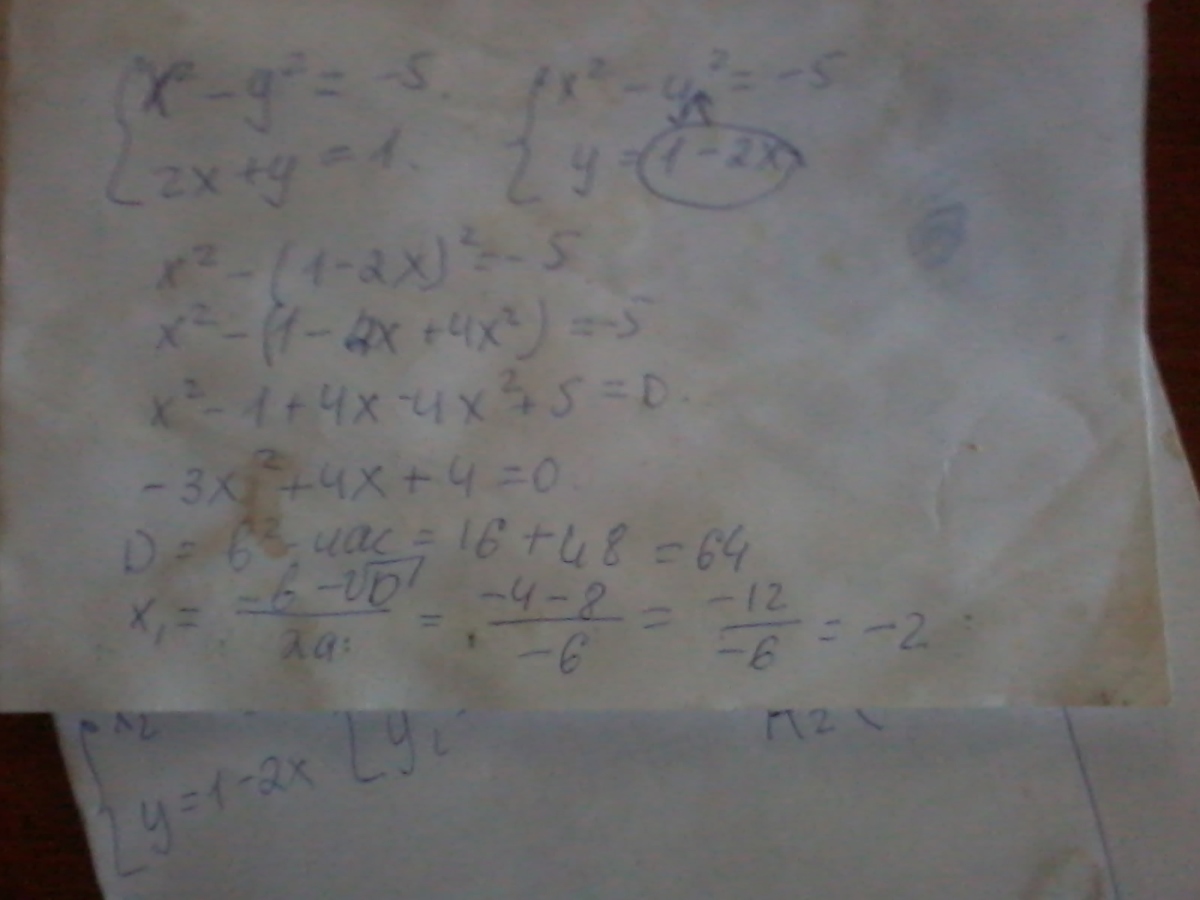 { x² - y² = -5. { x² - y² = -5
2x + y = 1. y = 1 - 2x
x² - (1 - 2x)² = -5
x² - (1 - 4x + 4x²) = -5
x² - 1 + 4x - 4x² + 5 = 0.
-3x² + 4x + 4 = 0.
D = b² - 4ac = 16 + 48 = 64
x₁ = (-b - √D) / 2a = (-4 - 8) / -6 = -12 / -6 = -2
y = 1 - 2x